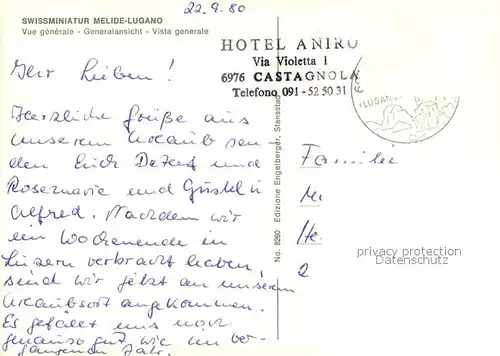 22.9.80
SWISSMINIATUR MELIDE-LUGANO
Vue générale - Generalansicht - Vista generale
HOTEL ANIRO
Via Violetta 1
6976 CASTAGNOLA
Telefono 091 - 52 50 31
LUGANO
Ihr Lieben!
Herzliche Grüße aus
unserem Urlaub sen
den Euch und
Rosemarie und Gustel u
Alfred. Nachdem wir
ein Wochenende in
Luzern verbracht haben,
sind wir jetzt an unserem
Urlaubsort angekommen.
Es gefällt uns noch
genauso gut wie im ver-
gangenen Jahr.
No. 8260 Edizione Engelberger, Stansstad
Familie
privacy protection
Datenschutz